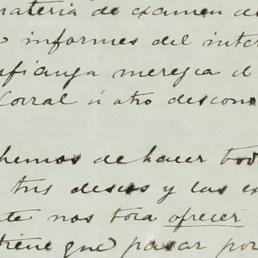 materia de examen de
informes del inter
nfianza merezca el
Corral ú otro descono
hemos de hacer tod
tus deseos y las ex
te nos toca ofrecer
tiene que pasar por